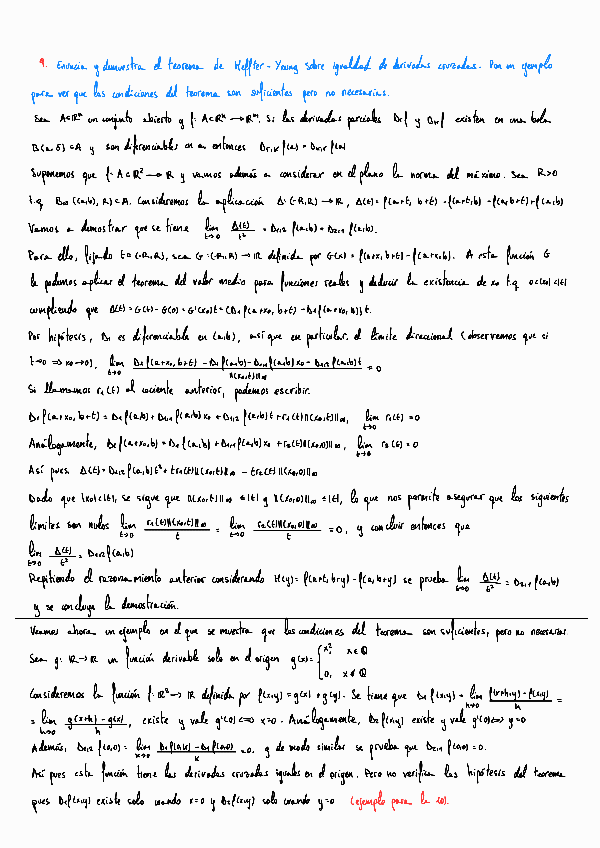 9. Enuncia y demuestra el teorema de Heffter-Young sobre igualdad de derivadas cruzadas. Pon un ejemplo
para ver que las condiciones del teorema son suficientes pero no necesarias.
Sea A⊂ℝⁿ un conjunto abierto y f: A⊂ℝⁿ → ℝᵐ. Si las derivadas parciales Dᵣf y Dₖf existen en una bola
B(a,δ)⊂A y son diferenciables en a entonces Dᵣ,ₖ f(a) = Dₖ,ᵣ f(a)
Suponemos que f: A⊂ℝ² → ℝ y vamos además a considerar en el plano la norma del máximo. Sea R>0
t.q B∞((a,b), R)⊂A. Consideremos la aplicación Δ: (-R,R) → ℝ, Δ(t) = f(a+t, b+t) - f(a+t,b) - f(a,b+t) + f(a,b)
Vamos a demostrar que se tiene lim t→0 Δ(t)/t² = D₁,₂ f(a,b) = D₂,₁ f(a,b).
Para ello, fijado t∈(-R,R), sea G: (-R,R) → ℝ definida por G(x) = f(a+x, b+t) - f(a+x,b). A esta función G
le podemos aplicar el teorema del valor medio para funciones reales y deducir la existencia de x₀ t.q 0<|x₀|<|t|
cumpliendo que Δ(t) = G(t) - G(0) = G'(x₀)t = (D₁ f(a+x₀, b+t) - D₁ f(a+x₀, b)) t.
Por hipótesis, D₁ es diferenciable en (a,b), así que en particular. el límite direccional (observemos que si
t→0 ⇒ x₀→0), lim t→0 (D₁ f(a+x₀, b+t) - D₁ f(a,b) - D₁,₁ f(a,b) x₀ - D₁,₂ f(a,b) t)/‖(x₀,t)‖∞ = 0
Si llamamos r₁(t) al cociente anterior, podemos escribir.
D₁ f(a+x₀, b+t) = D₁ f(a,b) + D₁,₁ f(a,b) x₀ + D₁,₂ f(a,b) t + r₁(t)‖(x₀,t)‖∞, lim t→0 r₁(t) = 0
Análogamente, D₁ f(a+x₀,b) = D₁ f(a,b) + D₁,₁ f(a,b) x₀ + r₂(t)‖(x₀,0)‖∞, lim t→0 r₂(t) = 0
Así pues Δ(t) = D₁,₂ f(a,b) t² + t r₁(t)‖(x₀,t)‖∞ - t r₂(t)‖(x₀,0)‖∞
Dado que |x₀|<|t|, se sigue que ‖(x₀,t)‖∞ ≤ |t| y ‖(x₀,0)‖∞ ≤ |t|, lo que nos permite asegurar que los siguientes
límites son nulos lim t→0 r₁(t)‖(x₀,t)‖∞/t = lim t→0 r₂(t)‖(x₀,0)‖∞/t = 0, y concluir entonces que
lim t→0 Δ(t)/t² = D₁,₂ f(a,b)
Repitiendo el razonamiento anterior considerando H(y) = f(a+t, b+y) - f(a, b+y) se prueba lim t→0 Δ(t)/t² = D₂,₁ f(a,b)
y se concluye la demostración.
Veamos ahora un ejemplo en el que se muestra que las condiciones del teorema son suficientes, pero no necesarias.
Sea g: ℝ → ℝ un función derivable solo en el origen g(x) = { x², x∈ℚ
0, x∉ℚ
Consideremos la función f: ℝ² → ℝ definida por f(x,y) = g(x) + g(y). Se tiene que D₁ f(x,y) = lim h→0 (f(x+h,y) - f(x,y))/h =
= lim h→0 (g(x+h) - g(x))/h, existe y vale g'(0) ⇔ x=0. Análogamente, D₂ f(x,y) existe y vale g'(0) ⇔ y=0
Además, D₁,₂ f(0,0) = lim k→0 (D₁ f(0,k) - D₁ f(0,0))/k = 0. y de modo similar se prueba que D₂,₁ f(0,0) = 0.
Así pues esta función tiene las derivadas cruzadas iguales en el origen. Pero no verifica las hipótesis del teorema
pues D₁f(x,y) existe solo cuando x=0 y D₂f(x,y) solo cuando y=0 (ejemplo para la 10).